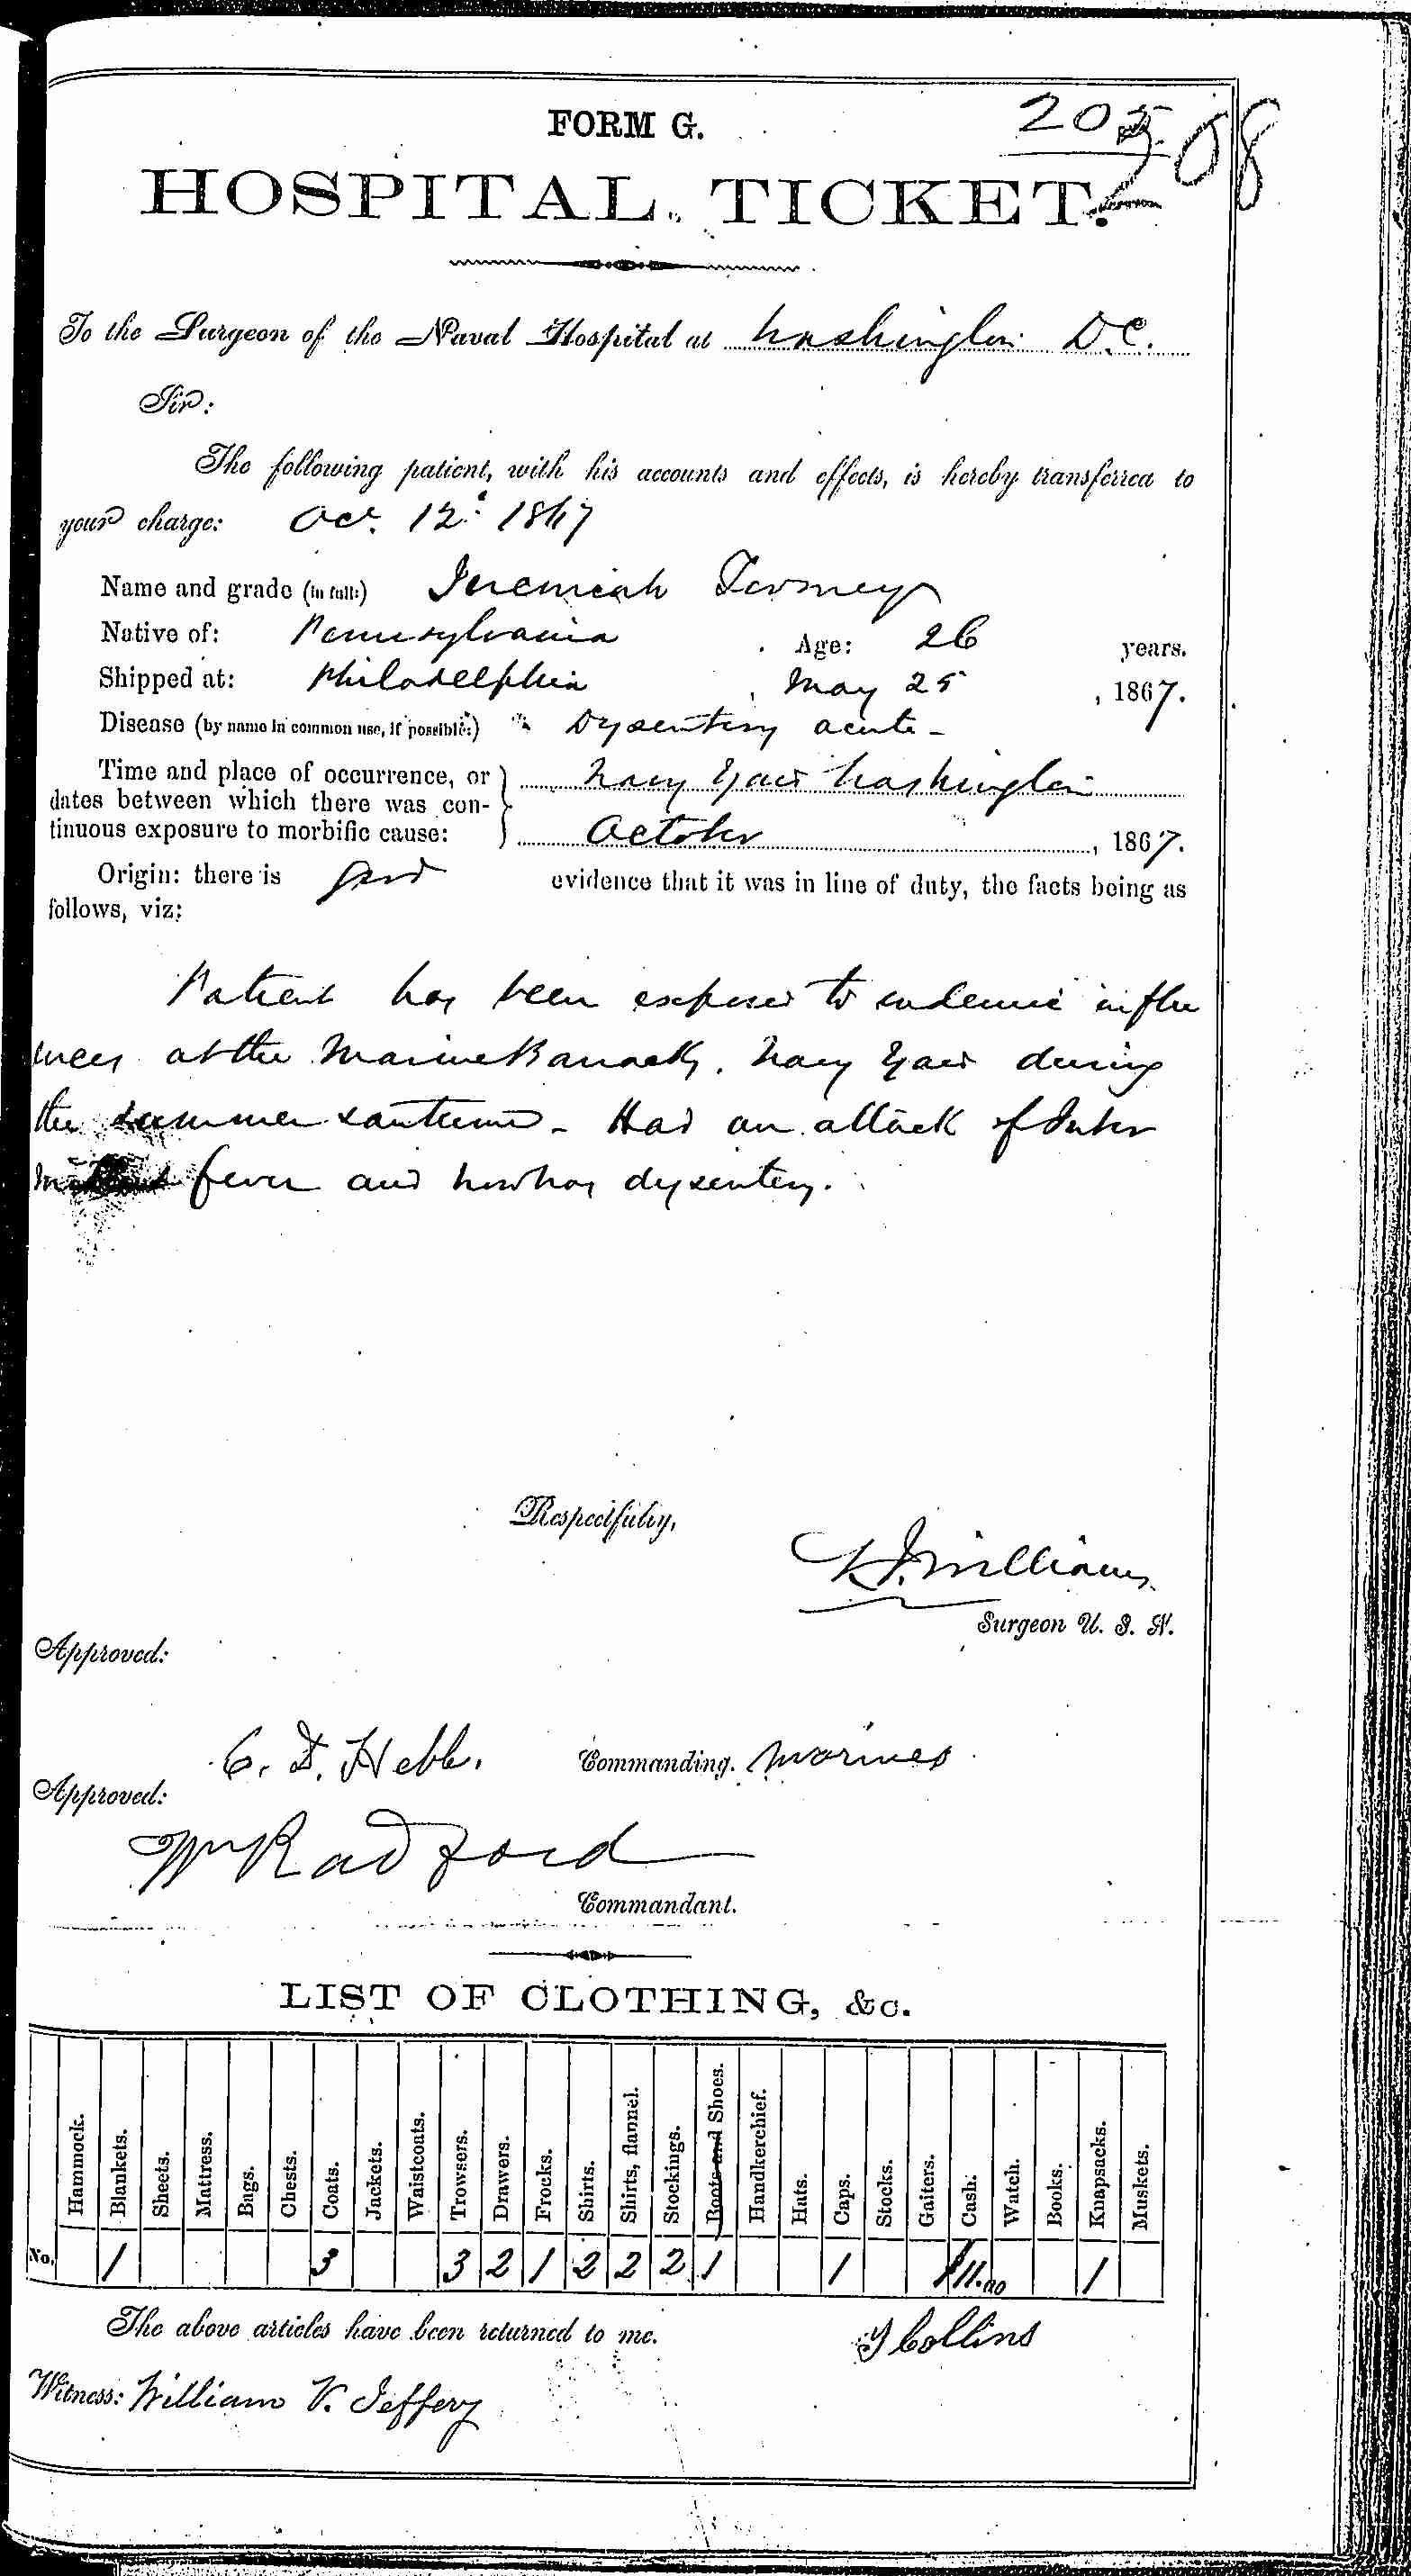 FORM G.
205
508
HOSPITAL TICKET.
To the Surgeon of the Naval Hospital at Washington D.C.
Sir:
The following patient, with his accounts and effects, is hereby transferred to
your charge: Oct. 12. 1867
Name and grade (in full:) Jeremiah Tormey
Native of: Pennsylvania . Age: 26 years.
Shipped at: Philadelphia , May 25 , 1867.
Disease (by name in common use, if possible:) Dysentery acute -
Time and place of occurrence, or Navy Yard Washington
dates between which there was con-
tinuous exposure to morbific cause: October , 1867.
Origin: there is good evidence that it was in line of duty, the facts being as
follows, viz:
Patient has been exposed to endemic influ
ences at the Marine Barracks, Navy Yard during
the summer & autumn - Had an attack of Inter
fever and now has dysentery.
Respectfully,
Williams
Surgeon U. S. N.
Approved:
C. D. Hebb. Commanding. Marines
Approved:
Wm Radford
Commandant.
LIST OF CLOTHING, &c.
Hammock. Blankets. Sheets. Mattress. Bags. Chests. Coats. Jackets. Waistcoats. Trowsers. Drawers. Frocks. Shirts. Shirts, flannel. Stockings. Boots and Shoes. Handkerchief. Hats. Caps. Stocks. Gaiters. Cash. Watch. Books. Knapsacks. Muskets.
No. 1 3 3 2 1 2 2 2 1 1 $11.00 1
The above articles have been returned to me. Collins
Witness: William V. Jeffery